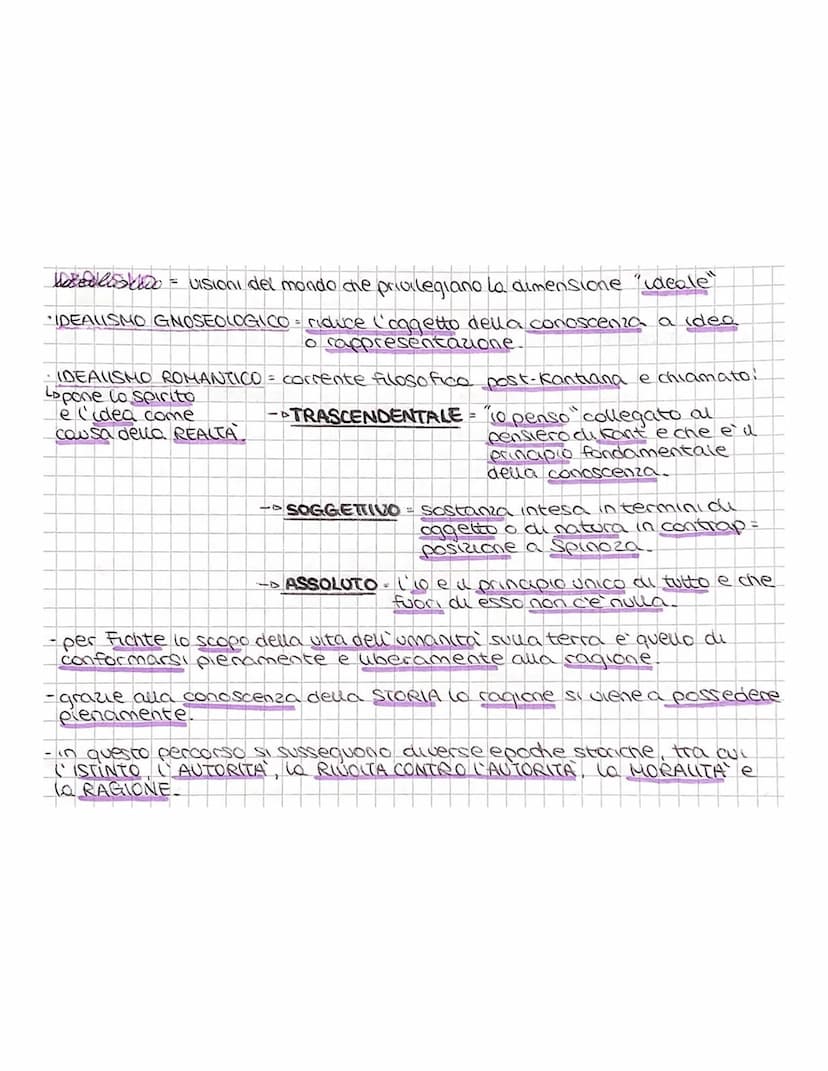 IDEALISMO = visioni del mondo che privilegiano la dimensione "ideale"
· IDEALISMO GNOSEOLOGICO = riduce l'oggetto della conoscenza a idea
o rappresentazione.
· IDEALISMO ROMANTICO = corrente filosofica post-Kantiana e chiamato:
↳ pone lo spirito
e l'idea come
causa della REALTÀ.
-▷ TRASCENDENTALE = "io penso" collegato al
pensiero di Kant e che è il
principio fondamentale
della conoscenza.
-▷ SOGGETTIVO = sostanza intesa in termini di
oggetto o di natura in contrap=
posizione a Spinoza.
-▷ ASSOLUTO = l'io e il principio unico di tutto e che
fuori di esso non c'è nulla.
- per Fichte lo scopo della vita dell'umanità sulla terra è quello di
conformarsi pienamente e liberamente alla ragione.
- grazie alla conoscenza della STORIA la ragione si viene a possedere
pienamente.
- in questo percorso si susseguono diverse epoche storiche, tra cui
l'ISTINTO, l'AUTORITÀ, la RIVOLTA CONTRO l'AUTORITÀ, la MORALITÀ e
la RAGIONE.